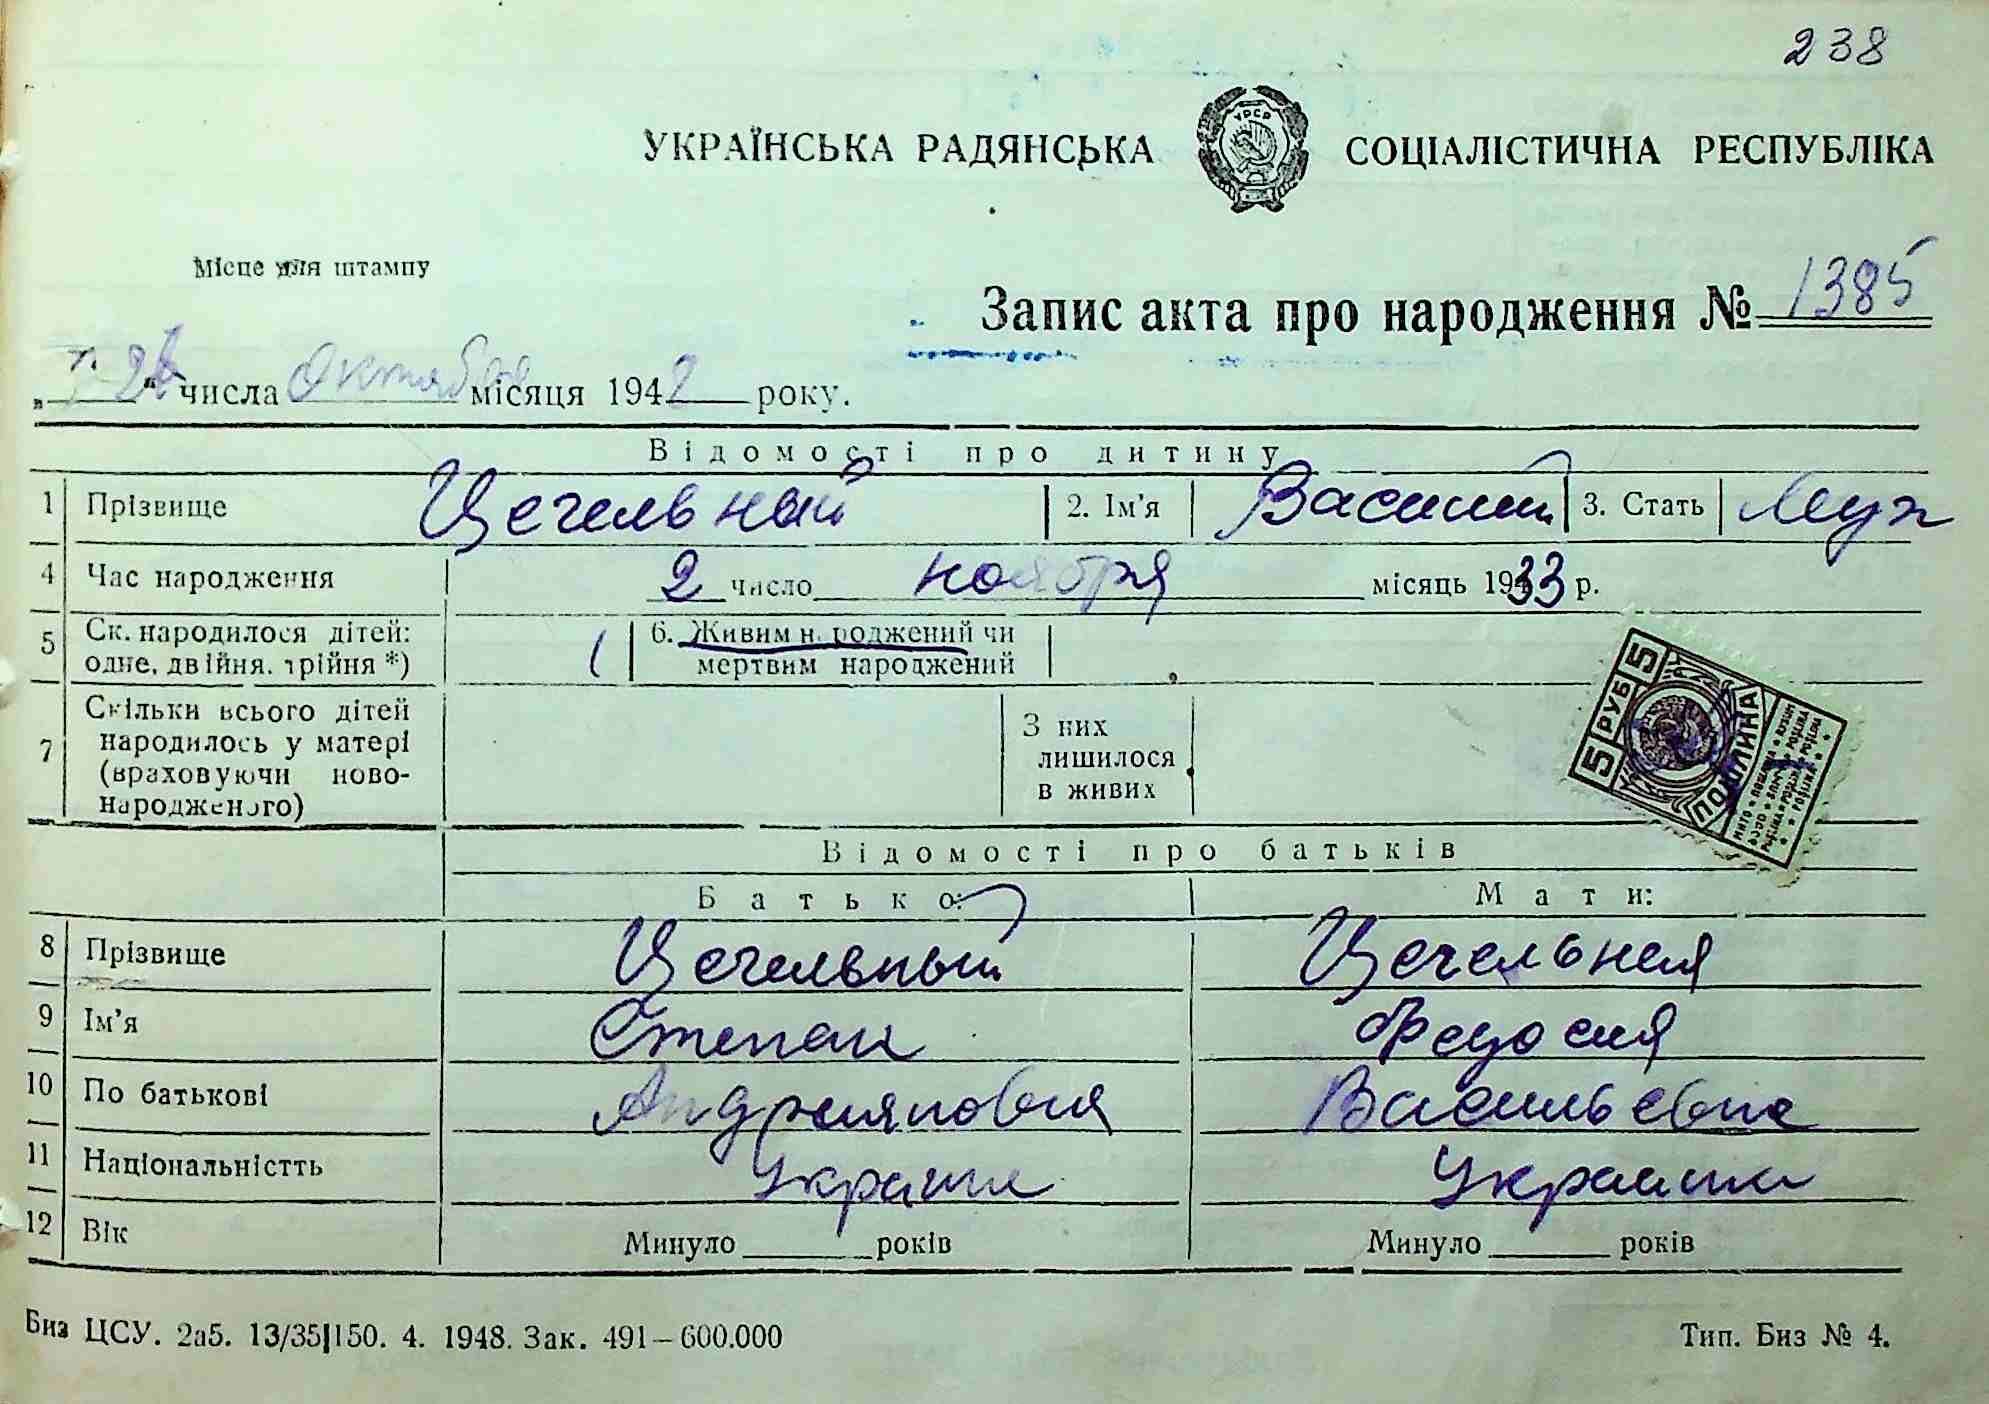 238
УКРАЇНСЬКА РАДЯНСЬКА СОЦІАЛІСТИЧНА РЕСПУБЛІКА
УРСР
Місце для штампу
Запис акта про народження № 1385
числа Октября місяця 194 року.
Відомості про дитину
1 Прізвище Цегельный 2. Ім'я Василий 3. Стать Муж
4 Час народження 2 число ноября місяць 1933 р.
5 Ск. народилося дітей: одне, двійня, трійня *) 1 6. Живим народжений чи мертвим народжений
7 Скільки всього дітей народилось у матері (враховуючи новонародженого) З них лишилося в живих
5 РУБ 5
ПОШЛИНА
Відомості про батьків
Батько: Мати:
8 Прізвище Цегельный Цегельная
9 Ім'я Степан Федосия
10 По батькові Андрияновия Васильевна
11 Національністть Украин Украин
12 Вік Минуло ______ років Минуло ______ років
Биз ЦСУ. 2а5. 13/35|150. 4. 1948. Зак. 491—600.000 Тип. Биз № 4.